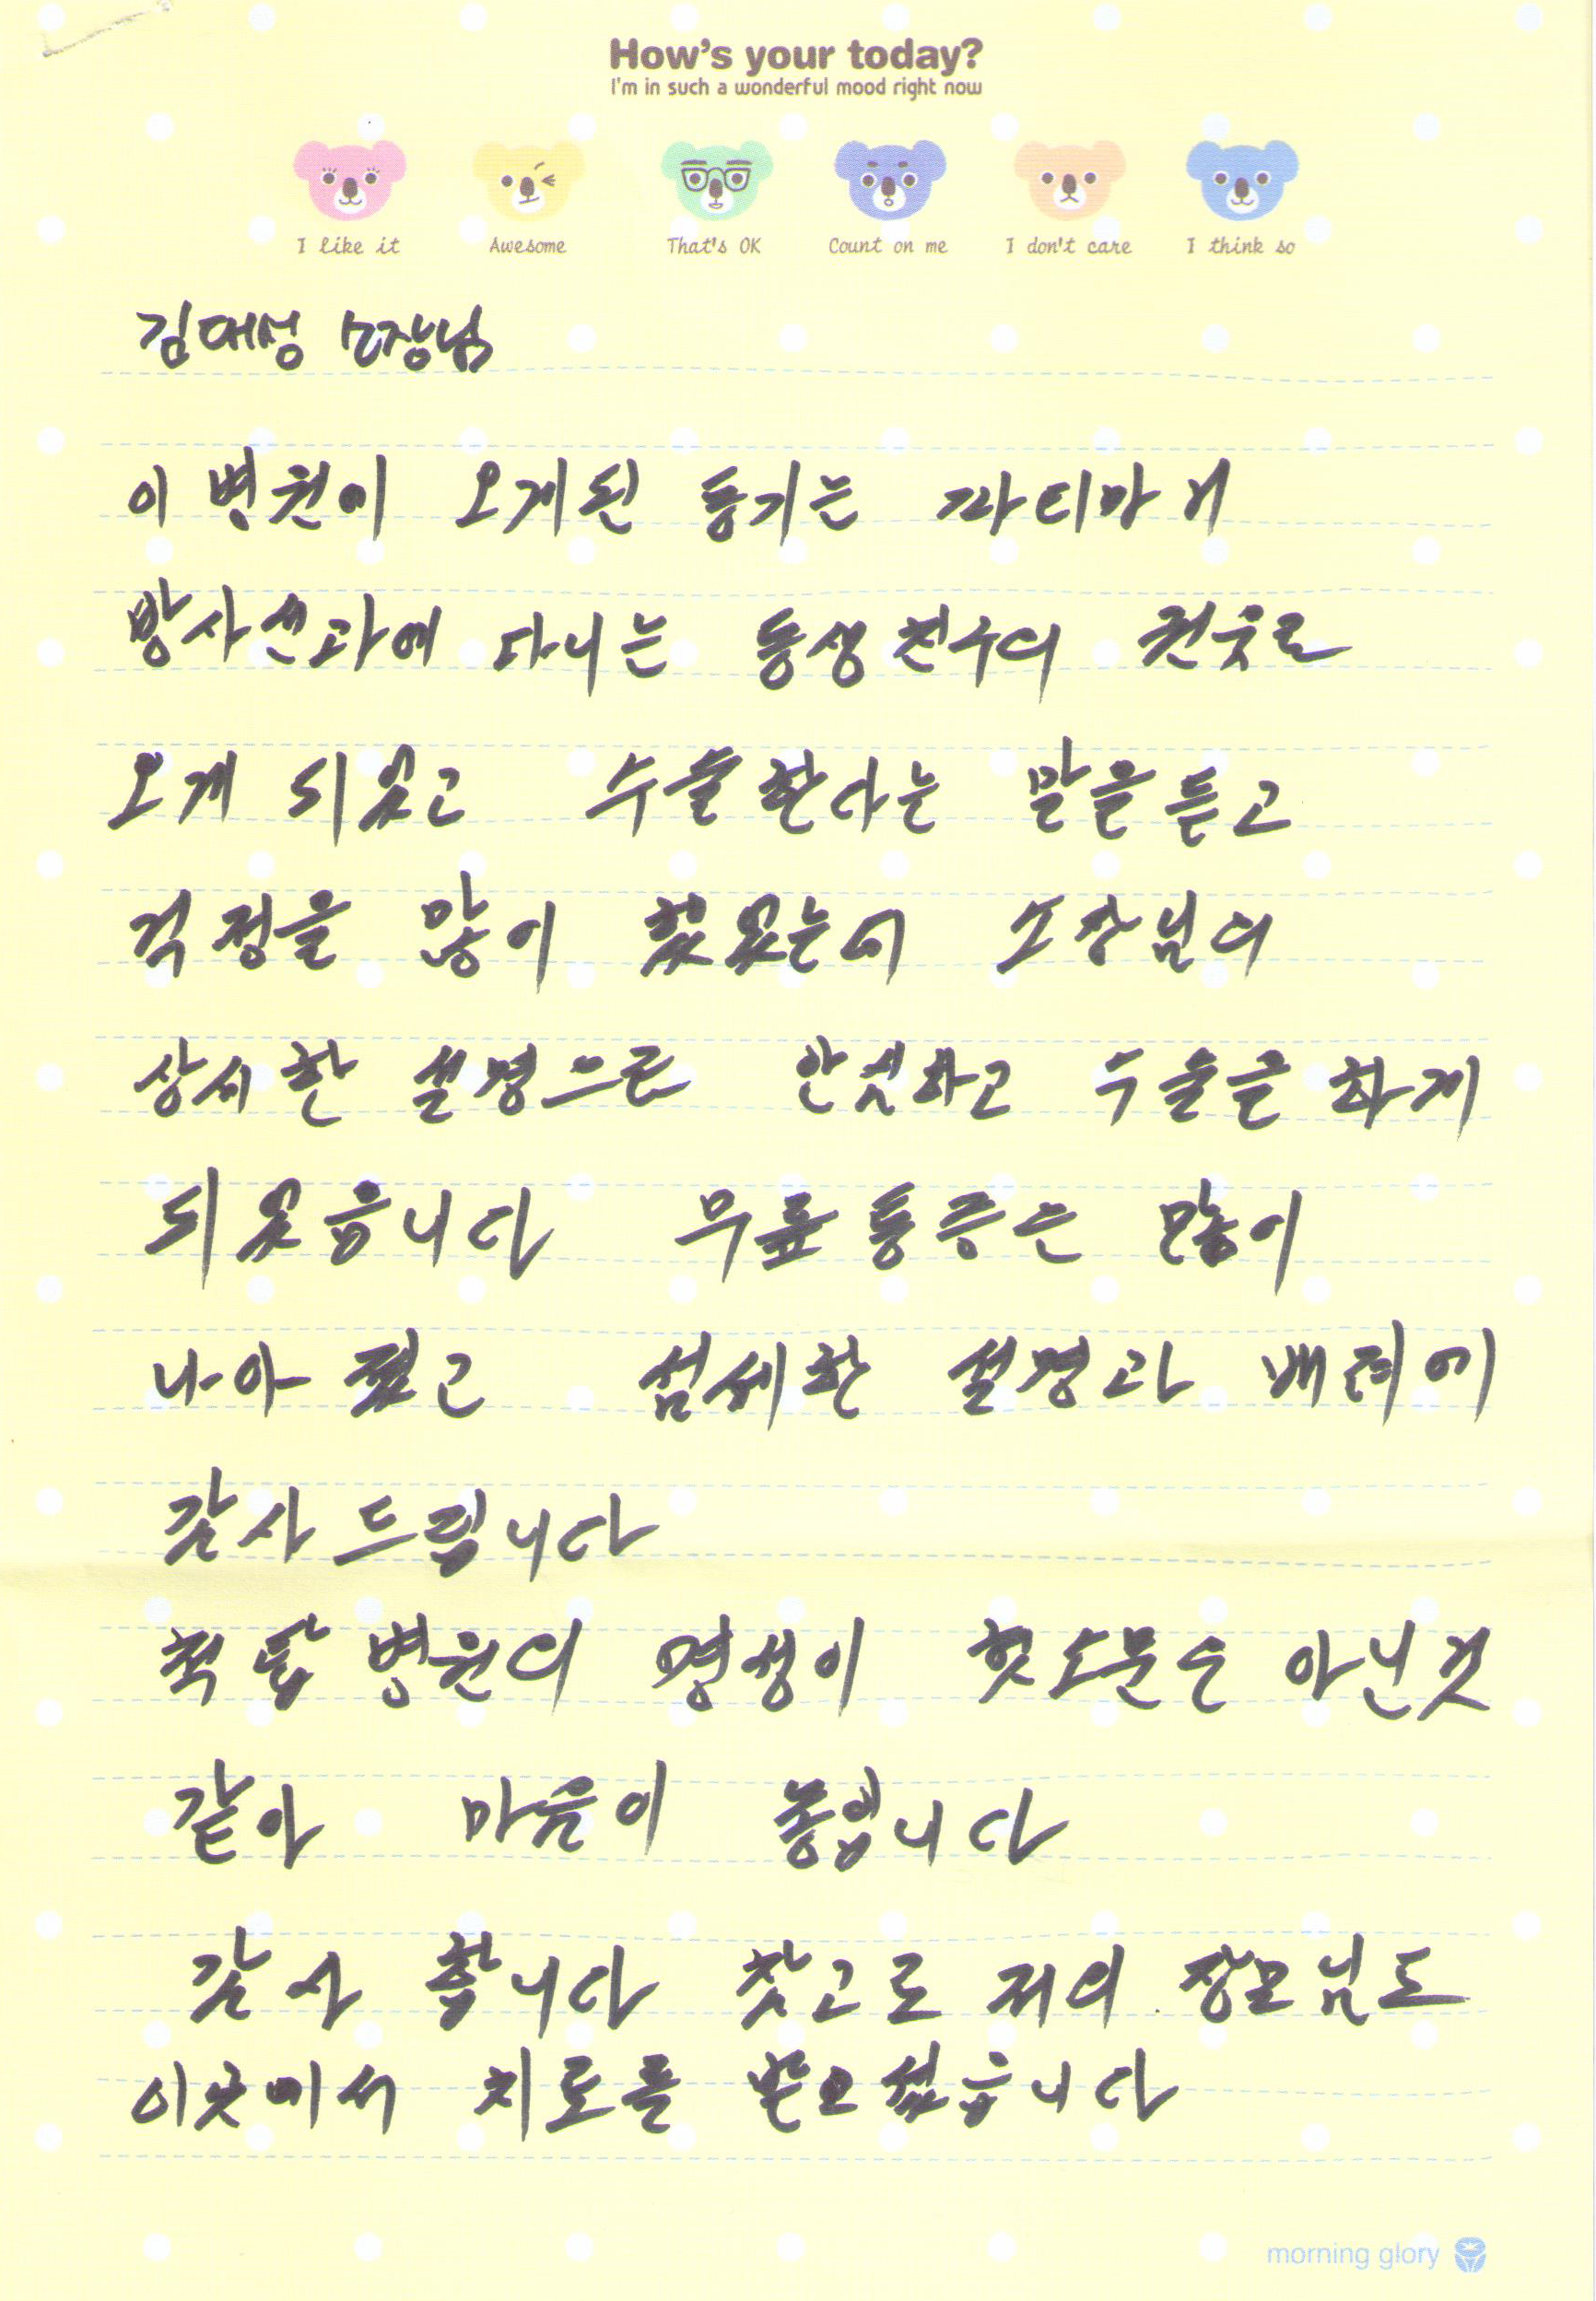 How's your today?
I'm in such a wonderful mood right now
I like it Awesome That's OK Count on me I don't care I think so
김대성 소장님
이 병원에 오게된 동기는 파티마에
방사선과에 다니는 동생친구의 권유로
오게 되었고 수술한다는 말을듣고
걱정을 많이 했었는데 소장님의
상세한 설명으로 안심하고 수술을 하게
되었읍니다 무릎통증은 많이
나아졌고 섬세한 설명과 배려에
감사드립니다
척탑병원의 명성이 헛소문은 아닌것
같아 마음이 놓입니다
감사합니다 참고로 저의 장모님도
이곳에서 치료를 받으셨읍니다
morning glory